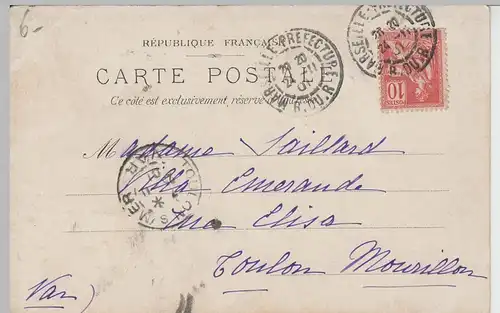 6-
RÉPUBLIQUE FRANÇAISE
CARTE POSTALE
Ce côté est exclusivement réservé
MARSEILLE-PREFECTURE
MARSEILLE-PREFECTURE
POSTES
10
Madame Saillard
Villa Emeraude
Rue Elisa
Toulon Mourillon
Var)
TOULON S MER
VAR